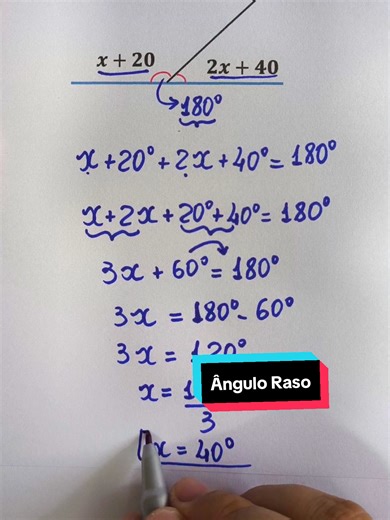 x + 20 2x + 40
180°
x+20°+2x+40°=180°
x+2x+20°+40°=180°
3x+60°=180°
3x = 180°-60°
3x = 120°
x = 1
Ângulo Raso
3
x = 40°